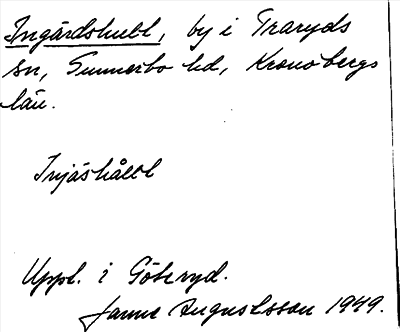 Ingärdshult, by i Traryds
sn, Sunnerbo hd, Kronobergs
län.
Injäshållt
Uppl. i Göteryd.
Janne Augustsson 1949.